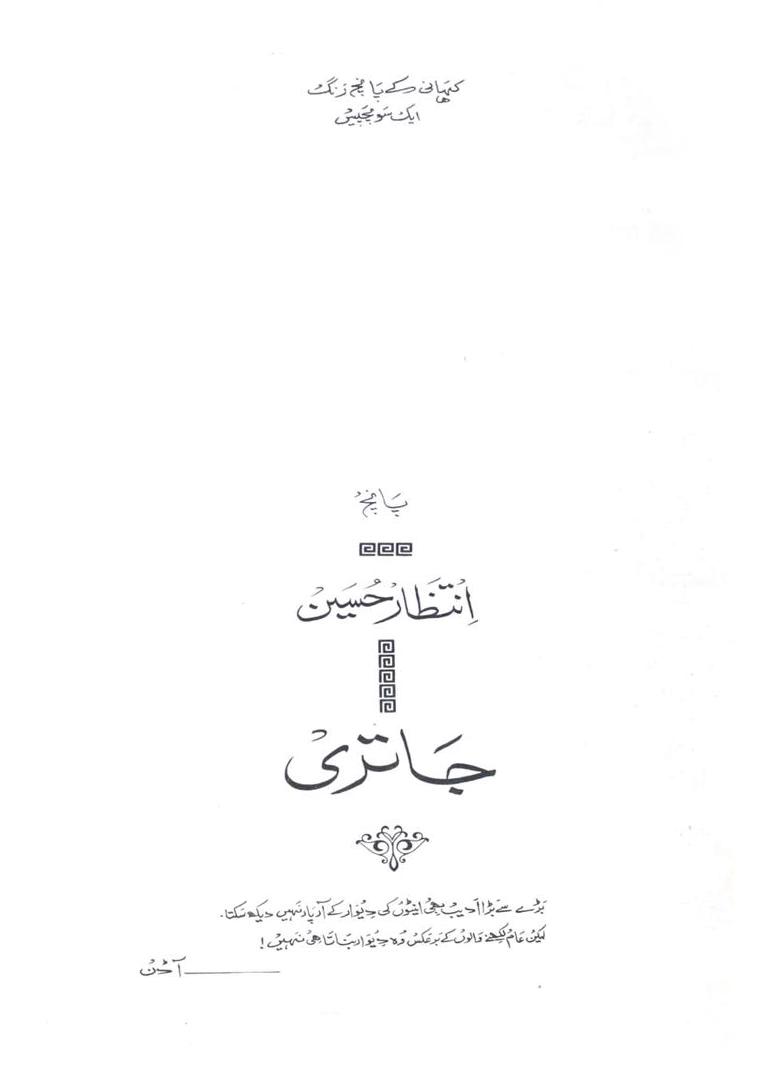 کہانی کے پانچ رنگ
ایک سو پچیس
پانچ
اِنتظار حُسین
جاتری
بڑے سے بڑا ادیب بھی اینٹوں کی دیوار کے آر پار نہیں دیکھ سکتا۔
لیکن عام لکھنے والوں کے برعکس وہ دیوار بناتا ہی نہیں!
آڈن